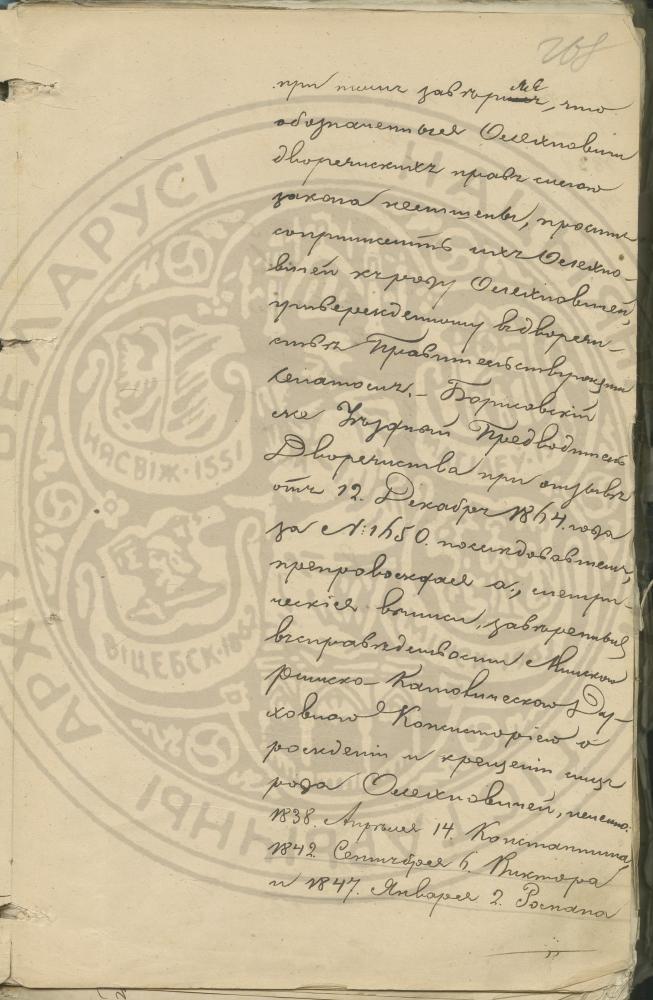 268
при томъ завѣряя, что
обозначенные Олехновичи
дворянскихъ правъ силою
закона не лишены, просить
сопричислить ихъ Олехно-
вичей къ роду Олехновичей,
утвержденному въ дворян-
ствѣ Правительствующимъ
Сенатомъ. – Борисовскій
же Уѣздный Предводитель
Дворянства при отзывѣ
отъ 12. Декабря 1864. года
за №: 1650. послѣдовавшемъ,
препровождая а., метри-
ческія выписи, завѣренныя
въ справедливости Минскою
Римско-Католическою Ду-
ховною Консисторіею о
рожденіи и крещеніи лицъ
рода Олехновичей, именно:
1838. Апрѣля 14. Константина,
1842. Сентября 6. Виктора
и 1847. Января 2. Романа
НАЦ
БЕЛАРУСІ
АРХІ
НЯСВІЖ·1551
ВІЦЕБСК·